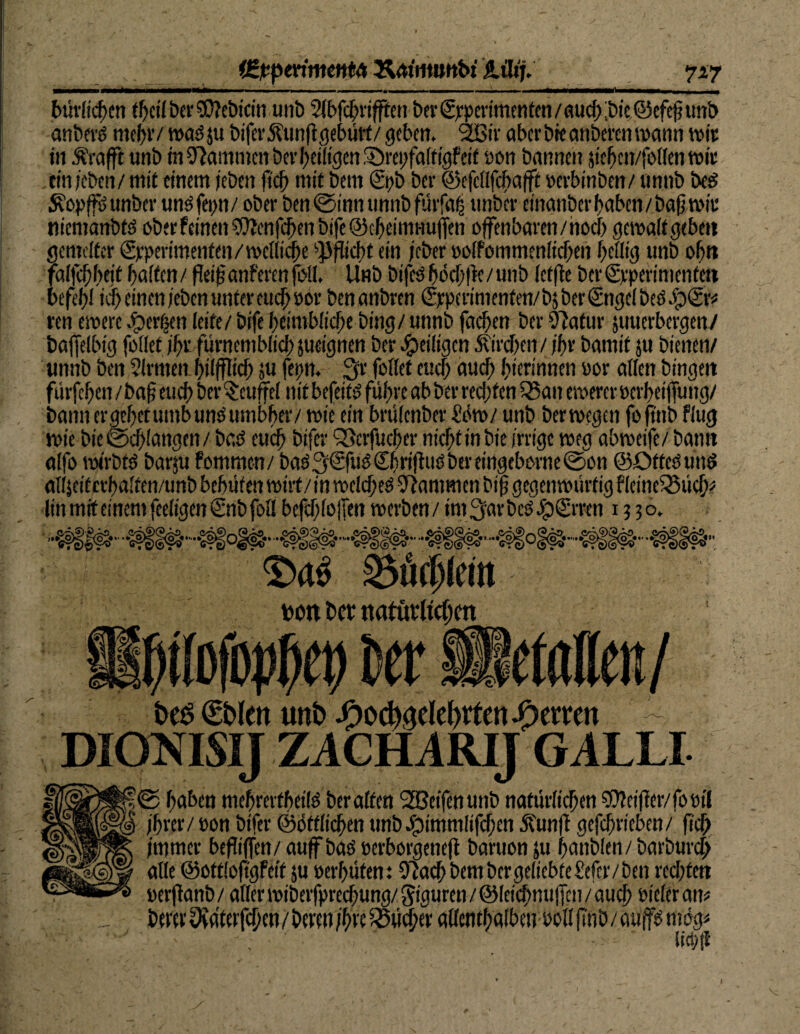 Experimenta Raimundi Lullij. 727
bürlichen theil der Medicin und Abschrifften der Experimenten / auch die Gesetz und
anders mehr / was zu diser Kunst gebürt / geben. Wir aber die anderen wann wir
in Krafft und in Nammen der heiligen Dreyfaltigkeit von dannen ziehen / sollen wir
ein jeden / mit einem jeden sich mit dem Eyd der Gesellschafft verbinden / unnd des
Kopffs under uns seyn / oder den Sinn unnd fürsatz under einander haben / daß wir
niemandts oder keinen Menschen dise Geheimnussen offenbaren / noch gewalt geben
gemelter Experimenten / welliche Pflicht ein jeder volkommenlichen hellig und ohn
falschheit halten / fleiß ankeren soll. Und dises höchste / und letste der Experimenten
befehl ich einen jeden unter euch vor den andren Experimenten / dz der Engel des HEr-
ren ewere Hertzen leite / dise heimbliche ding / unnd sachen der Natur zuuerbergen /
dasselbig sollet ihr fürnemblich zueignen der Heiligen Kirchen / ihr damit zu dienen /
unnd den Armen hilfflich zu seyn. Ir sollet euch auch hierinnen vor allen dingen
fürsehen / daß euch der Teuffel nit beseits führe ab der rechten Ban ewerer verheissung /
dann er gehet umb uns umbher / wie ein brülender Löw / und derwegen so sind klug
wie die Schlangen / das euch diser Versucher nicht in die irrige weg abweise / dann
also wirdts darzu kommen / das JEsus Christus der eingeborne Son GOttes uns
allzeit erhalten / und behüten wirt / in welches Nammen diß gegenwürtig kleine Büch-
lin mit einem seeligen End soll beschlossen werden / im Jar des HErren 1330.
Das Büchlein
von der natürlichen
Philosophey der Metallen /
des Edlen und Hochgelehrten Herren
DIONISIJ ZACHARIJ GALLI.
ES haben mehrertheils der alten Weisen und natürlichen Meister / so vil
ihrer / von diser Göttlichen und Himmlischen Kunst geschrieben / sich
immer beflissen / auff das verborgenest daruon zu handlen / dardurch
alle Gottlosigkeit zu verhüten: Nach dem der geliebte Leser / den rechten
verstand / aller widersprechung / Figuren / Gleichnussen / auch vieler an-
derer Rätterschen / deren ihre Bücher allenthalben voll sind / auffs mög-
lichst